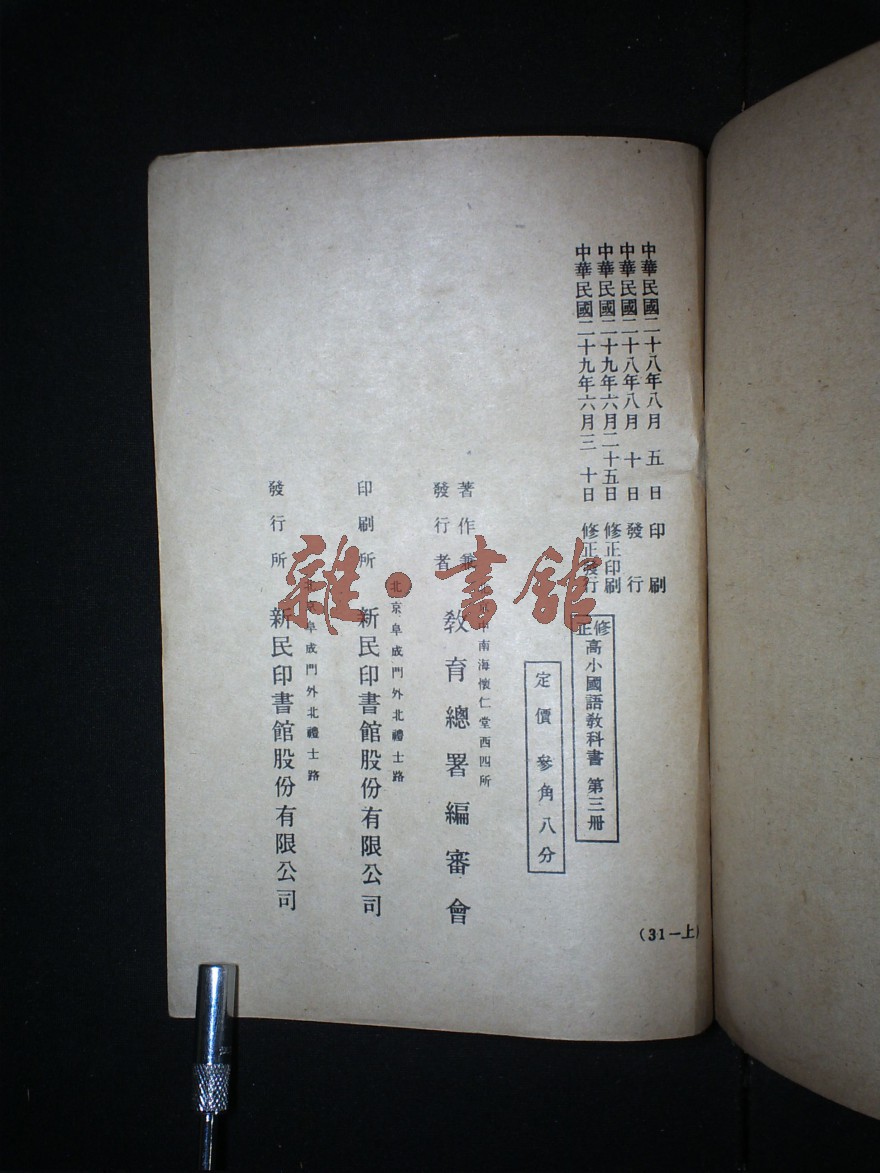 中華民國二十八年八月五日印刷
中華民國二十八年八月十日發行
中華民國二十九年六月二十五日修正印刷
中華民國二十九年六月三十日修正發行
修正高小國語教科書 第三冊
定價 參角八分
著作兼
發行者
中南海懷仁堂西四所
教育總署編審會
北京阜成門外北禮士路
印刷所 新民印書館股份有限公司
北京阜成門外北禮士路
發行所 新民印書館股份有限公司
(31—上)
雜·書館